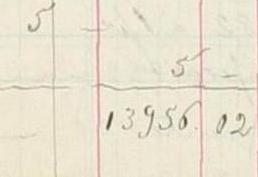 5 -
5 -
13956. 02